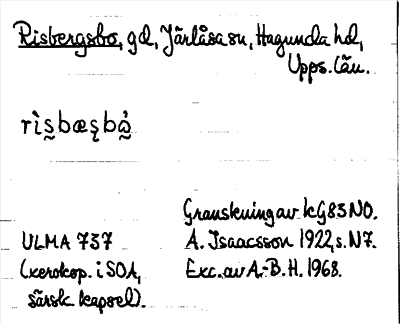 Risbergsbo, gd, Järlåsa sn, Hagunda hd,
Upps. län.
rìs̰bæs̨bå̰̀
Granskning av kG83NO.
ULMA 737 A. Isaacsson 1922, s. N7.
(xerokop. i SOA, Exc. av A.-B. H. 1968.
särsk. kapsel).